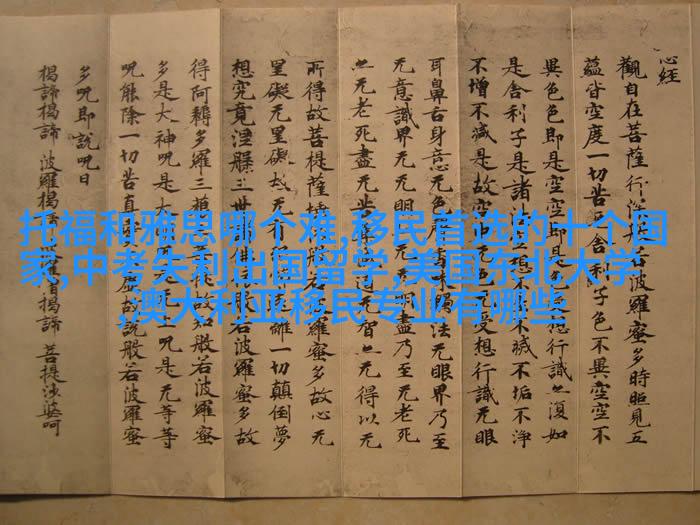 心经
觀自在菩薩行深般若波羅蜜多時照見五
蘊皆空度一切苦舍利子色不異空空不
異色色即是空空即是想行識亦復如
是舍利子是諸法想不不滅不垢不淨
不增不減是故空无色无受想行識无眼
耳鼻舌身意无色香味觸法无眼界乃至
无意識界无无明无明盡乃至无老死
亦无老死盡无苦道无智亦无得以无
所得故菩提薩埵般若波羅蜜多故心无
罣礙无罣礙故无有遠離一切顛倒夢
想究竟涅槃三世佛依般若波羅蜜多故
得阿耨多羅三藐菩提故知般若波羅蜜
多是大神呪是大呪是无等等
呪能除一切苦真實不虛故說般若波羅蜜
多呪即說呪曰
揭諦揭諦 波羅揭諦 羅僧揭諦 菩提沙婆呵
托福和雅思哪个难,移民首选的十个国
家,中考失利出国留学,美国东北大学
,澳大利亚移民专业有哪些